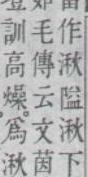 作湫隘湫下
毛傳云文茵
訓高燥爲湫